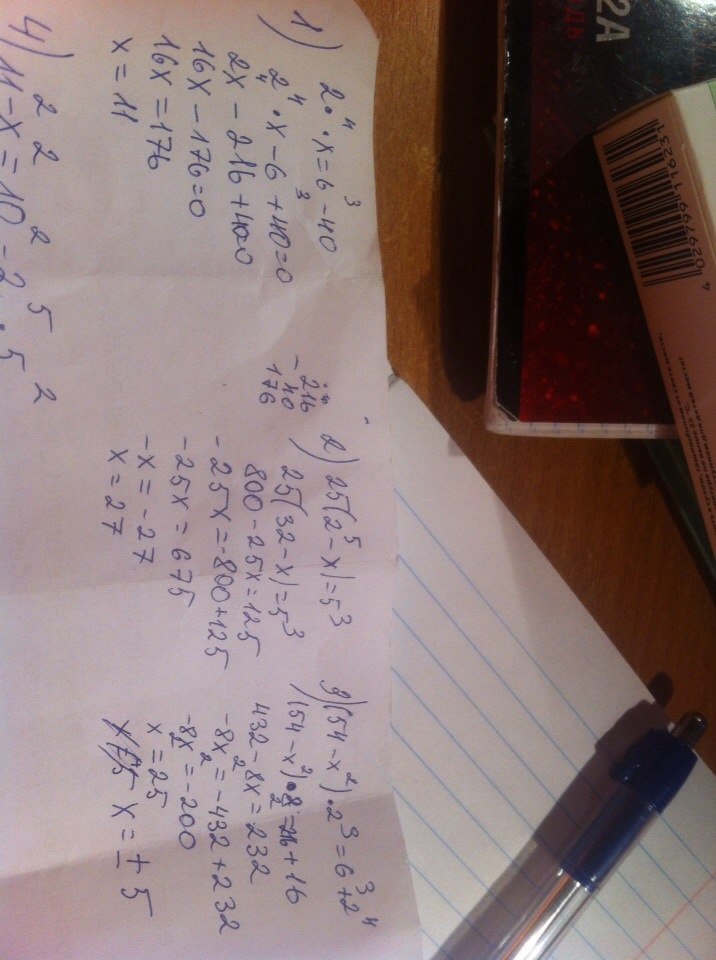 1) 2⁴·x=6³-40
2⁴·x-6³+40=0
2⁴x-216+40=0
16x-176=0
16x=176
x=11
-216
40
176
2) 25(2⁵-x)=5³
25(32-x)=5³
800-25x=125
-25x=-800+125
-25x=675
-x=-27
x=27
3)(54-x²)·2³=6³+2⁴
(54-x²)·8=216+16
432-8x²=232
-8x²=-432+232
-8x²=-200
x²=25
x=±5
4) 11²-x²=10²-2⁵·5²
2A
4 029799 116231